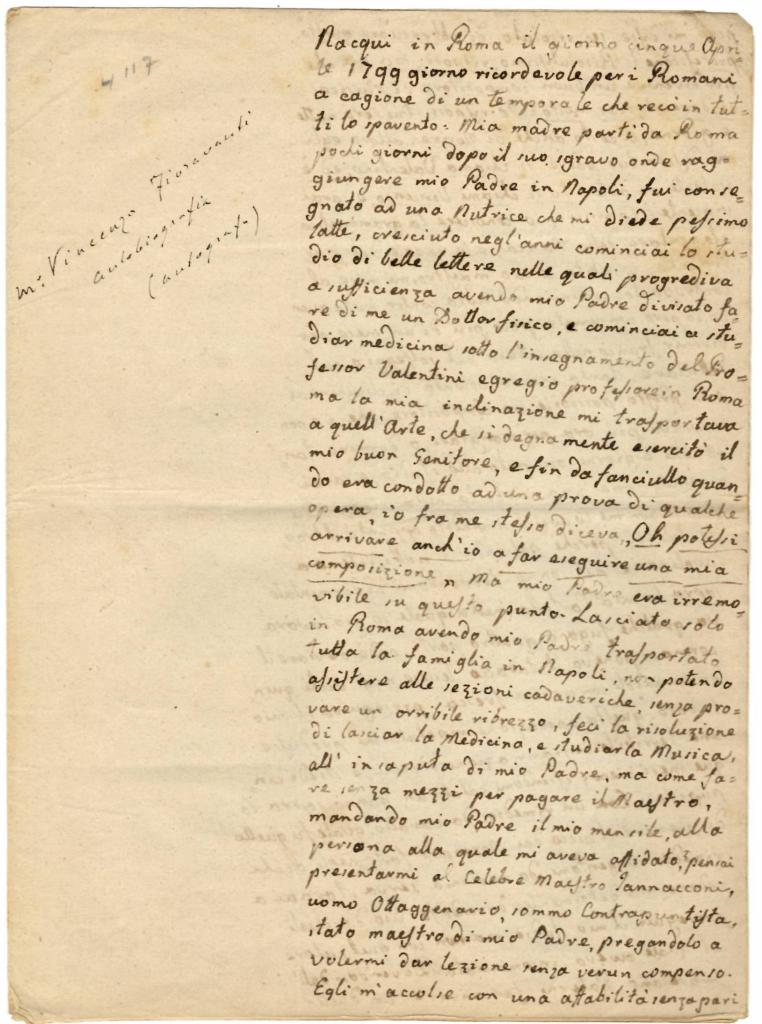 4117
M.º Vincenzo Fioravanti
autobiografia
(autografa)
Nacqui in Roma il giorno cinque Apri-
le 1799 giorno ricordevole per i Romani
a cagione di un temporale che recò in tut=
ti lo spavento: Mia madre partì da Roma
pochi giorni dopo il suo sgravo onde rag=
giungere mio Padre in Napoli, fui conse=
gnato ad una Nutrice che mi diede pessimo
latte, cresciuto negl'anni cominciai lo stu=
dio di belle lettere nelle quali progrediva
a sufficienza avendo mio Padre divisato fa=
re di me un Dottor fisico, e cominciai a stu=
diar medicina sotto l'insegnamento del Pro=
fessor Valentini egregio professore in Roma
ma la mia inclinazione mi trasportava
a quell'Arte, che sì degnamente esercitò il
mio buon Genitore, e fin da fanciullo quan=
do era condotto ad una prova di qualche
opera, io fra me stesso diceva „Oh potessi
arrivare anch'io a far eseguire una mia
composizione „ Ma mio Padre era irremo=
vibile su questo punto. Lasciato solo
in Roma avendo mio Padre trasportato
tutta la famiglia in Napoli, non potendo
assistere alle sezioni cadaveriche, senza pro=
vare un orribile ribrezzo, feci la risoluzione
di lasciar la Medicina, e studiar la Musica,
all'insaputa di mio Padre, ma come fa=
re senza mezzi per pagare il Maestro,
mandando mio Padre il mio mensile, alla
persona alla quale mi aveva affidato, pensai
presentarmi al Celebre Maestro Jannacconi,
uomo Ottaggenario, sommo Contrapuntista,
stato maestro di mio Padre, pregandolo a
volermi dar lezione senza verun compenso.
Egli m'accolse con una affabilità senza pari